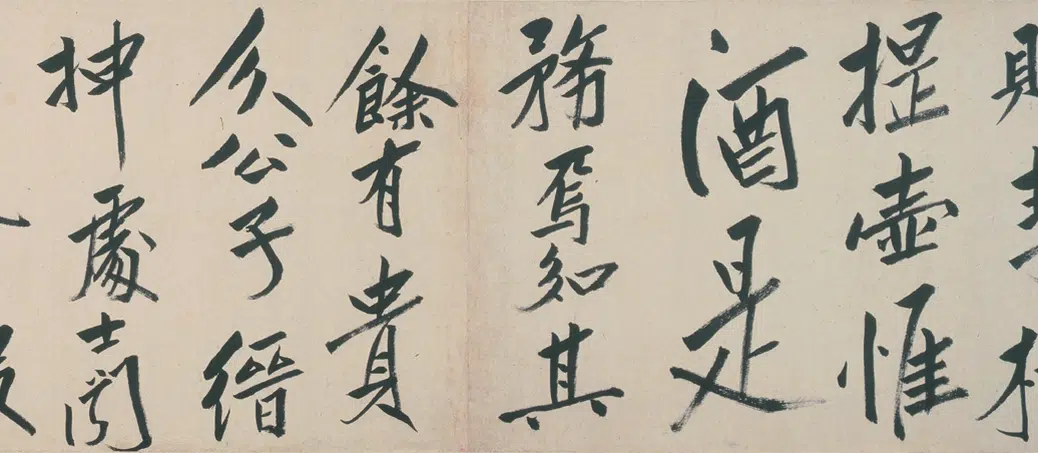 提壺惟
酒是
務焉知其
餘有貴
介公子縉
抻處士聞